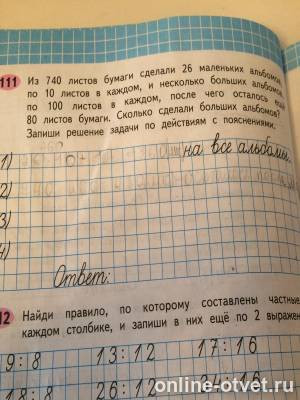 111 Из 740 листов бумаги сделали 26 маленьких альбомов,
по 10 листов в каждом, и несколько больших альбомов,
по 100 листов в каждом, после чего осталось ещё
80 листов бумаги. Сколько сделали больших альбомов?
Запиши решение задачи по действиям с пояснениями.
1) на все альбомы
2)
3)
4)
Ответ:
12 Найди правило, по которому составлены частные
каждом столбике, и запиши в них ещё по 2 выражен
9 : 8 13 : 12 17 : 16
18 : 8 26 : 12 34 : 16
online-otvet.ru